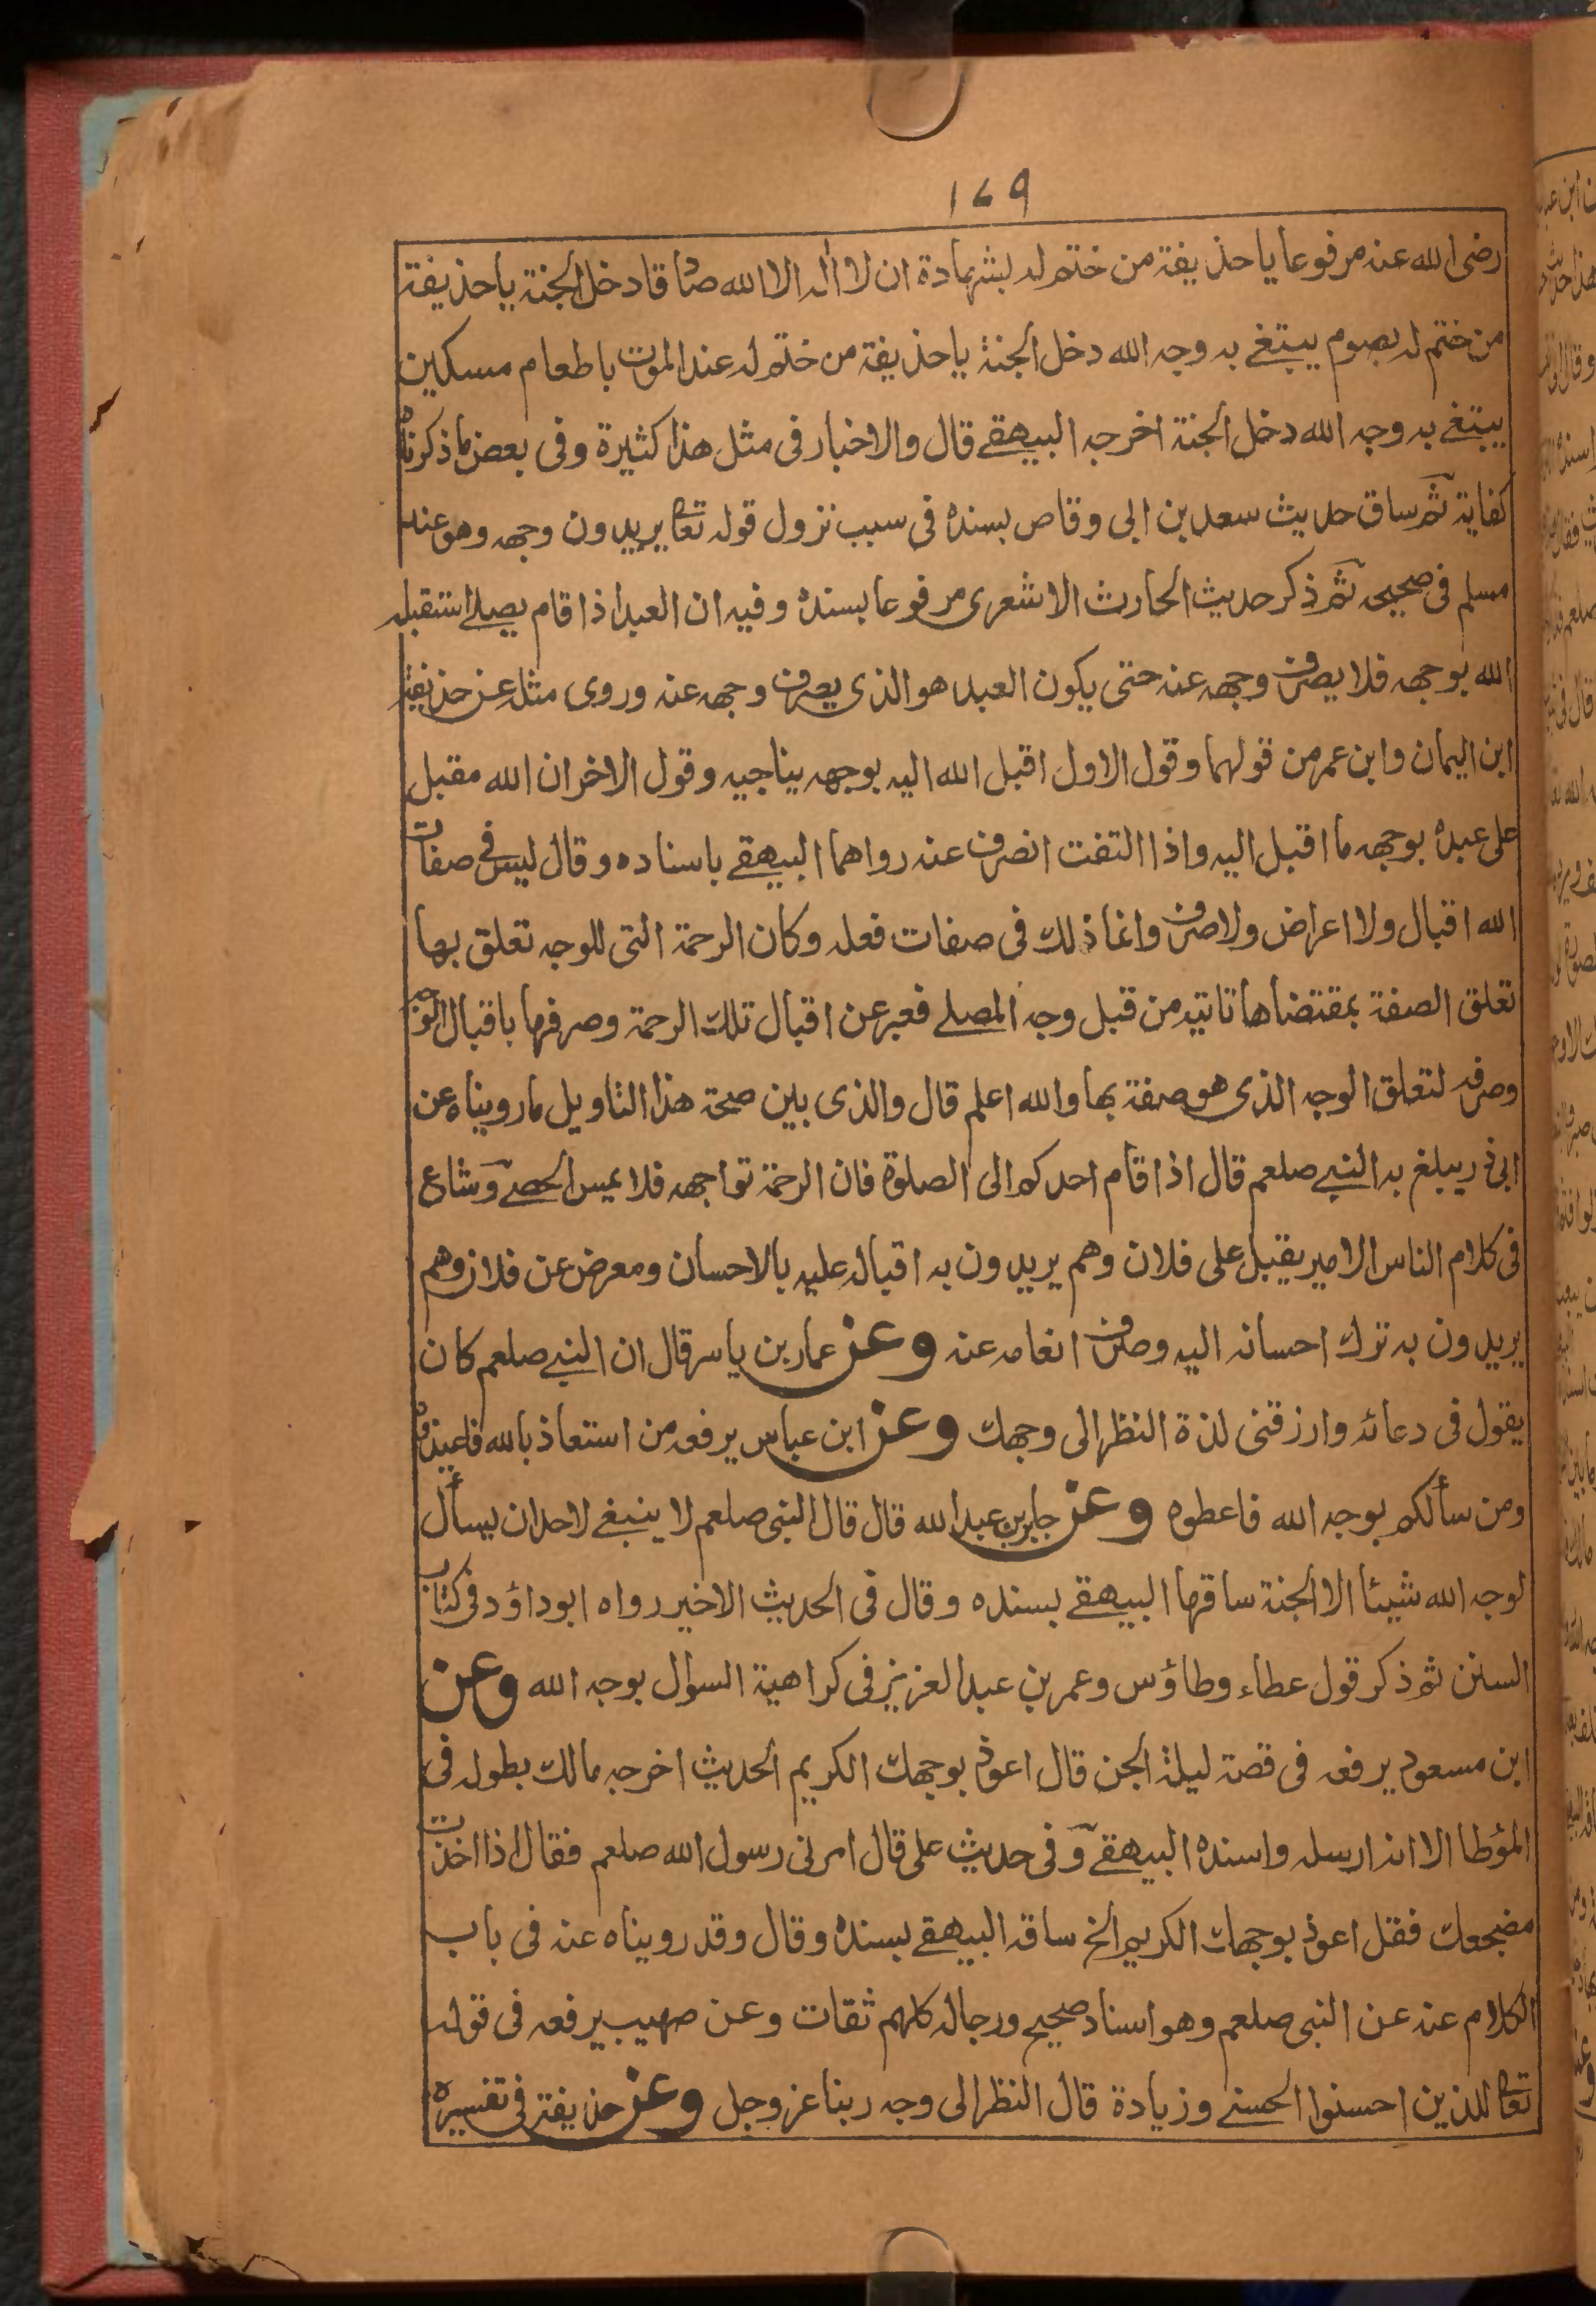 ۱۷۹
رضى الله عنه مرفوعا يا حذيفة من ختم له بشهادة ان لا اله الا الله صادقا دخل الجنة يا حذيفة
من ختم له بصوم يبتغى به وجه الله دخل الجنة يا حذيفة من ختم له عند الموت باطعام مسكين
يبتغى به وجه الله دخل الجنة اخرجه البيهقے قال والاخبار فى مثل هذا كثيرة وفى بعض ما ذكرناه
كفاية ثم ساق حديث سعد بن ابى وقاص بسنده فى سبب نزول قوله تعا يريدون وجهه وهو عند
مسلم فى صحيحه ثم ذكر حديث الحارث الاشعرى مرفوعا بسنده وفيه ان العبد اذا قام يصلے استقبله
الله بوجهه فلا يصرف وجهه عنه حتى يكون العبد هو الذى يصرف وجهه عنه وروى مثله عن حذيفة
ابن اليمان وابن عمر من قولهما وقول الاول اقبل الله اليه بوجهه يناجيه وقول الاخر ان الله مقبل
على عبده بوجهه ما اقبل اليه واذا التفت انصرف عنه رواهما البيهقے باسناده وقال ليس فى صفات
الله اقبال ولا اعراض ولا صرف وانما ذلك فى صفات فعله وكان الرحمة التى للوجه تعلق بها
تعلق الصفة بمقتضاها تاتيه من قبل وجه المصلے فعبر عن اقبال تلك الرحمة وصرفها باقبال الوجه
وصرفه لتعلق الوجه الذى هو صفة بها والله اعلم قال والذى يبين صحة هذا التاويل ما رويناه عن
ابى ذر يبلغ به النبے صلعم قال اذا قام احدكم الى الصلوة فان الرحمة تواجهه فلا يمس الحصے وشاع
فى كلام الناس الامير يقبل على فلان وهم يريدون به اقباله عليه بالاحسان ومعرض عن فلان وهم
يريدون به ترك احسانه اليه وصرف انعامه عنه وعن عمار بن ياسر قال ان النبے صلعم كان
يقول فى دعائه وارزقنى لذة النظر الى وجهك وعن ابن عباس يرفعه من استعاذ بالله فاعيذوه
ومن سألكم بوجه الله فاعطوه وعن جابر بن عبد الله قال قال النبى صلعم لا ينبغے لاحد ان يسأل
لوجه الله شيئا الا الجنة ساقها البيهقے بسنده وقال فى الحديث الاخير رواه ابو داؤد فى كتاب
السنن ثم ذكر قول عطاء وطاؤس وعمر بن عبد العزيز فى كراهية السوال بوجه الله وعن
ابن مسعود يرفعه فى قصة ليلة الجن قال اعوذ بوجهك الكريم الحديث اخرجه مالك بطوله فى
المؤطا الا انه ارسله واسنده البيهقے وفى حديث على قال امرنى رسول الله صلعم فقال اذا اخذت
مضجعك فقل اعوذ بوجهك الكريم الخ ساقه البيهقے بسنده وقال وقد رويناه عنه فى باب
الكلام عنه عن النبى صلعم وهو اسناد صحيح ورجاله كلهم ثقات وعن صهيب يرفعه فى قوله
تعا للذين احسنوا الحسنے وزيادة قال النظر الى وجه ربنا عز وجل وعن حذيفة فى تفسيره